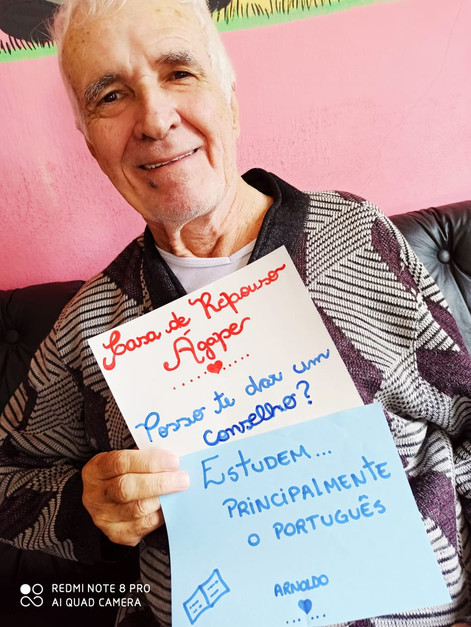 Casa de Repouso
Ágape
Posso te dar um
conselho?
ESTUDEM...
PRINCIPALMENTE
O PORTUGUÊS
ARNOLDO
REDMI NOTE 8 PRO
AI QUAD CAMERA